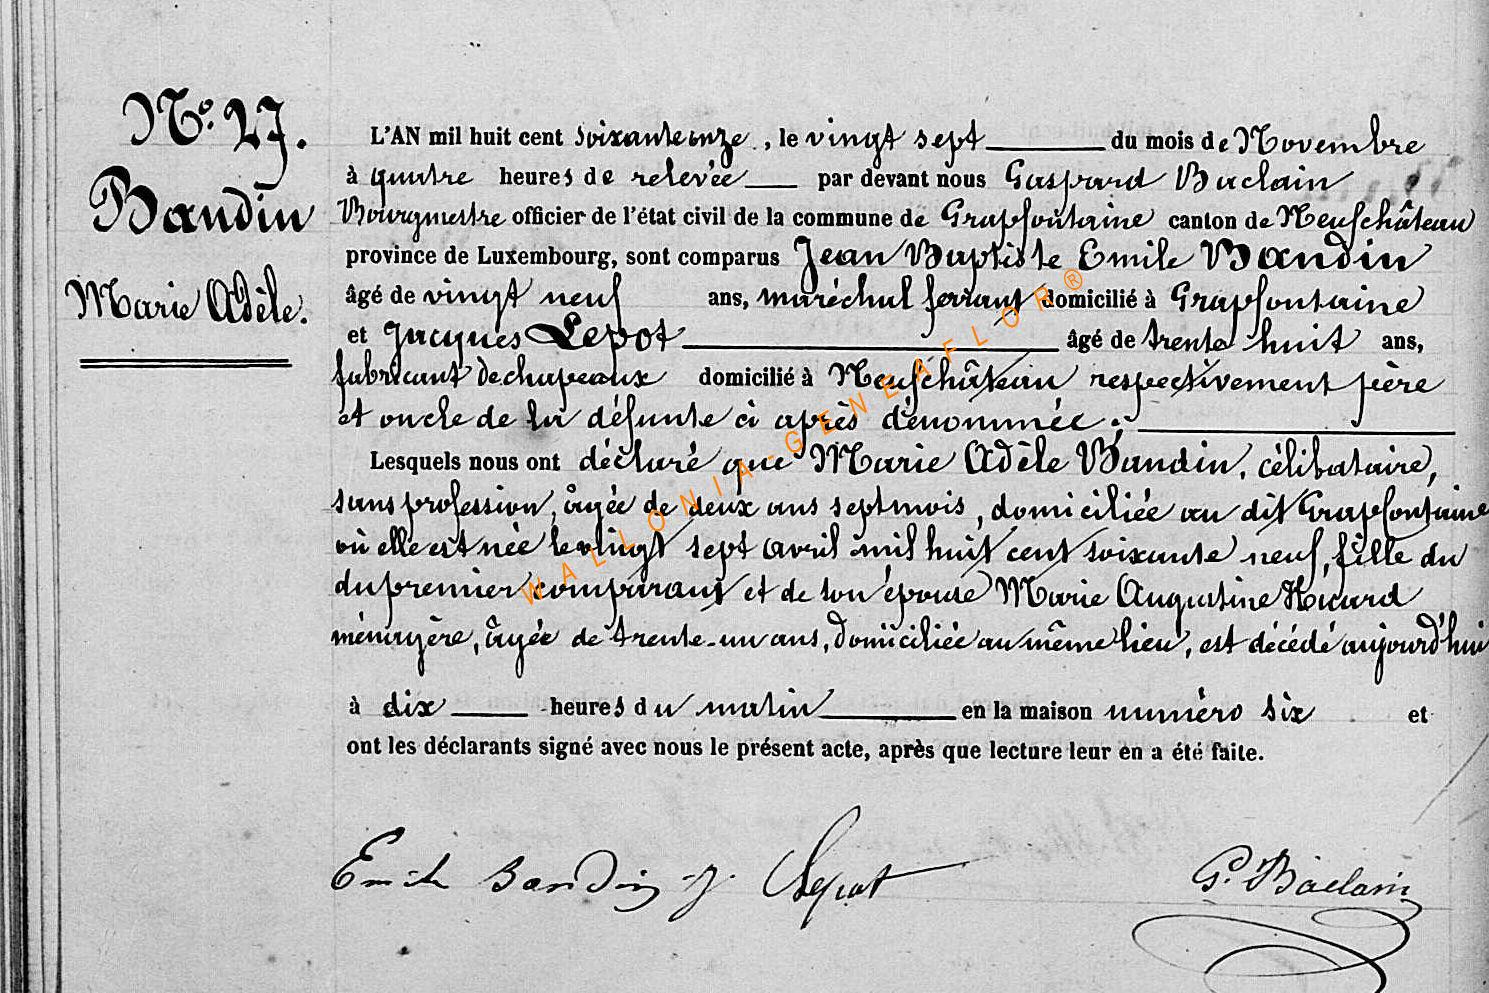 Nº. 27.
Bandin
Marie Adèle.
L'AN mil huit cent soixante onze, le vingt sept du mois de Novembre
à quatre heures de relevée par devant nous Gaspard Baclain
Bourgmestre officier de l'état civil de la commune de Grapfontaine canton de Neufchâteau
province de Luxembourg, sont comparus Jean Baptiste Emile Bandin
âgé de vingt neuf ans, maréchal ferrant domicilié à Grapfontaine
et Jacques Lepot âgé de trente huit ans,
fabricant de chapeaux domicilié à Neufchâteau respectivement père
et oncle de la défunte ci après dénommée.
Lesquels nous ont déclaré que Marie Adèle Bandin, célibataire,
sans profession, âgée de deux ans sept mois, domiciliée au dit Grapfontaine
où elle est née le vingt sept avril mil huit cent soixante neuf, fille du
du premier comparant et de son épouse Marie Augustine Huard
ménagère, âgée de trente-un ans, domiciliée au même lieu, est décédé aujourd'hui
à dix heures du matin en la maison numéro six et
ont les déclarants signé avec nous le présent acte, après que lecture leur en a été faite.
Emile Bandin J. Lepot G. Baclain
WALLONIA-GENEAFLOR®